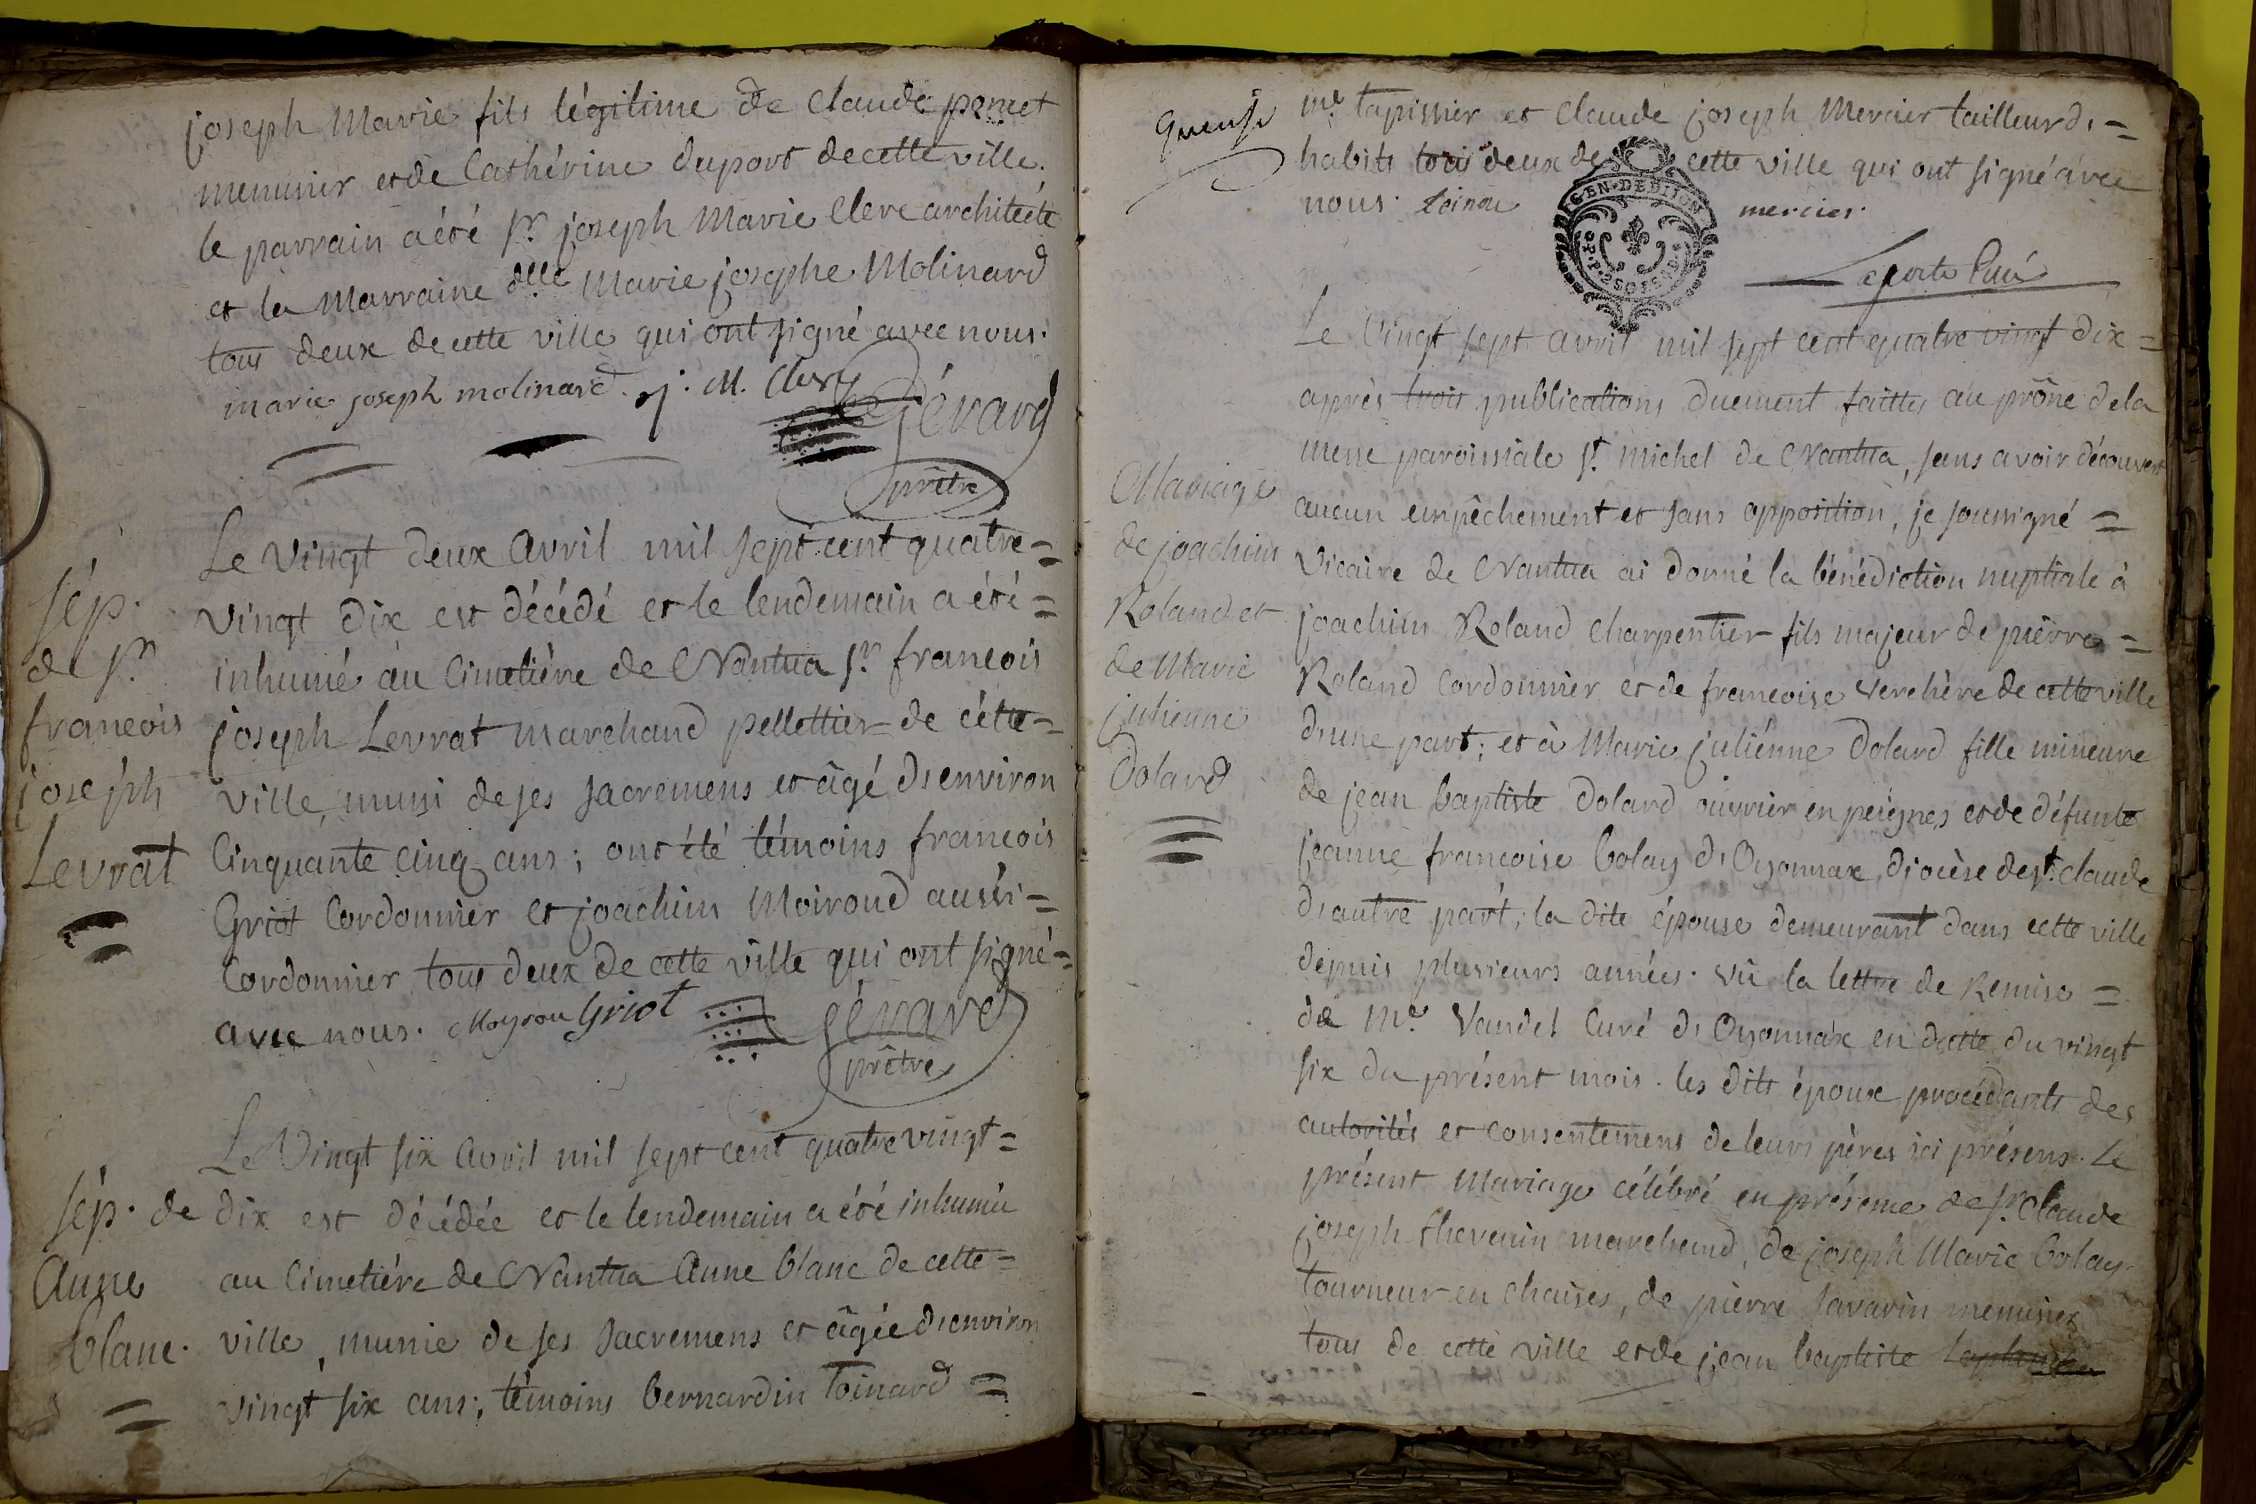 joseph Marie fils légitime de Claude pernet
menusier et de Cathérine duport de cette ville.
le parrain a été sr. joseph Marie Clerc architécte
et la Marraine dlle Marie josephe Molinard
tous deux de cette ville qui ont signé avec nous.
marie joseph molinard. j. M. Clerc
Gérard
prêtre
Le vingt deux avril mil sept cent quatre =
sép.
vingt dix est décédé et le lendemain a été =
de sr.
inhumé au Cimetière de Nantua sr. francois
francois
joseph Levrat marchand pellettier de cétte =
joseph
ville, muni de ses sacremens et âgé d'environ
Levrat
Cinquante cinq ans; ont été témoins francois
Griot Cordonnier et joachim Moiroud aussi =
Cordonnier tous deux de cette ville qui ont signé =
avec nous. Moyrou Griot
Gérard
prêtre
Le vingt six avril mil sept cent quatre vingt =
sép. de
dix est décédée et le lendemain a été inhumée
Anne
au Cimetiére de Nantua Anne blanc de cette =
blanc.
ville, munie de ses sacremens et âgée d'environ
vingt six ans; témoins bernardin Toinard =
me. tapissier et Claude joseph Mercier tailleur d' =
habits tous deux de cette ville qui ont signé avec
nous. toinar mercier.
GEN. DE DIJON
Le vingt sept avril mil sept cent quatre vingt dix =
apprès trois publications duement faittes au prône de la
messe paroissiale st. michel de Nantua, sans avoir découvert
Mariage
aucun empêchement et sans opposition, je soussigné =
de joachim
Vicaire de Nantua ai donné la bénédiction nuptiale à
Roland et
joachim Roland Charpentier fils majeur de pièrre =
de Marie
Roland Cordonnier et de francoise Verchère de cette ville
julienne
d'une part; et à Marie juliénne Dolard fille mineure
Dolard
de jean baptiste Dolard ouvrier en peignes et de défunte
jeanne francoise bolay d'Oyonnax, diocèse de st. claude
d'autre part; la dite épouse demeurant dans cette ville
depuis plusieurs années. vû la lettre de Remise =
de Mr. Vandel Curé d'Oyonnax en datte du vingt
six du présent mois. les dits époux procédants des
autorités et consentemens de leurs pères ici présens. Le
présent Mariage célébré en présence de sr. Claude
joseph thevenin marchand, de joseph Marie bolay
tourneur en chaises, de pièrre Savarin menusier
tous de cette ville et de jean baptiste